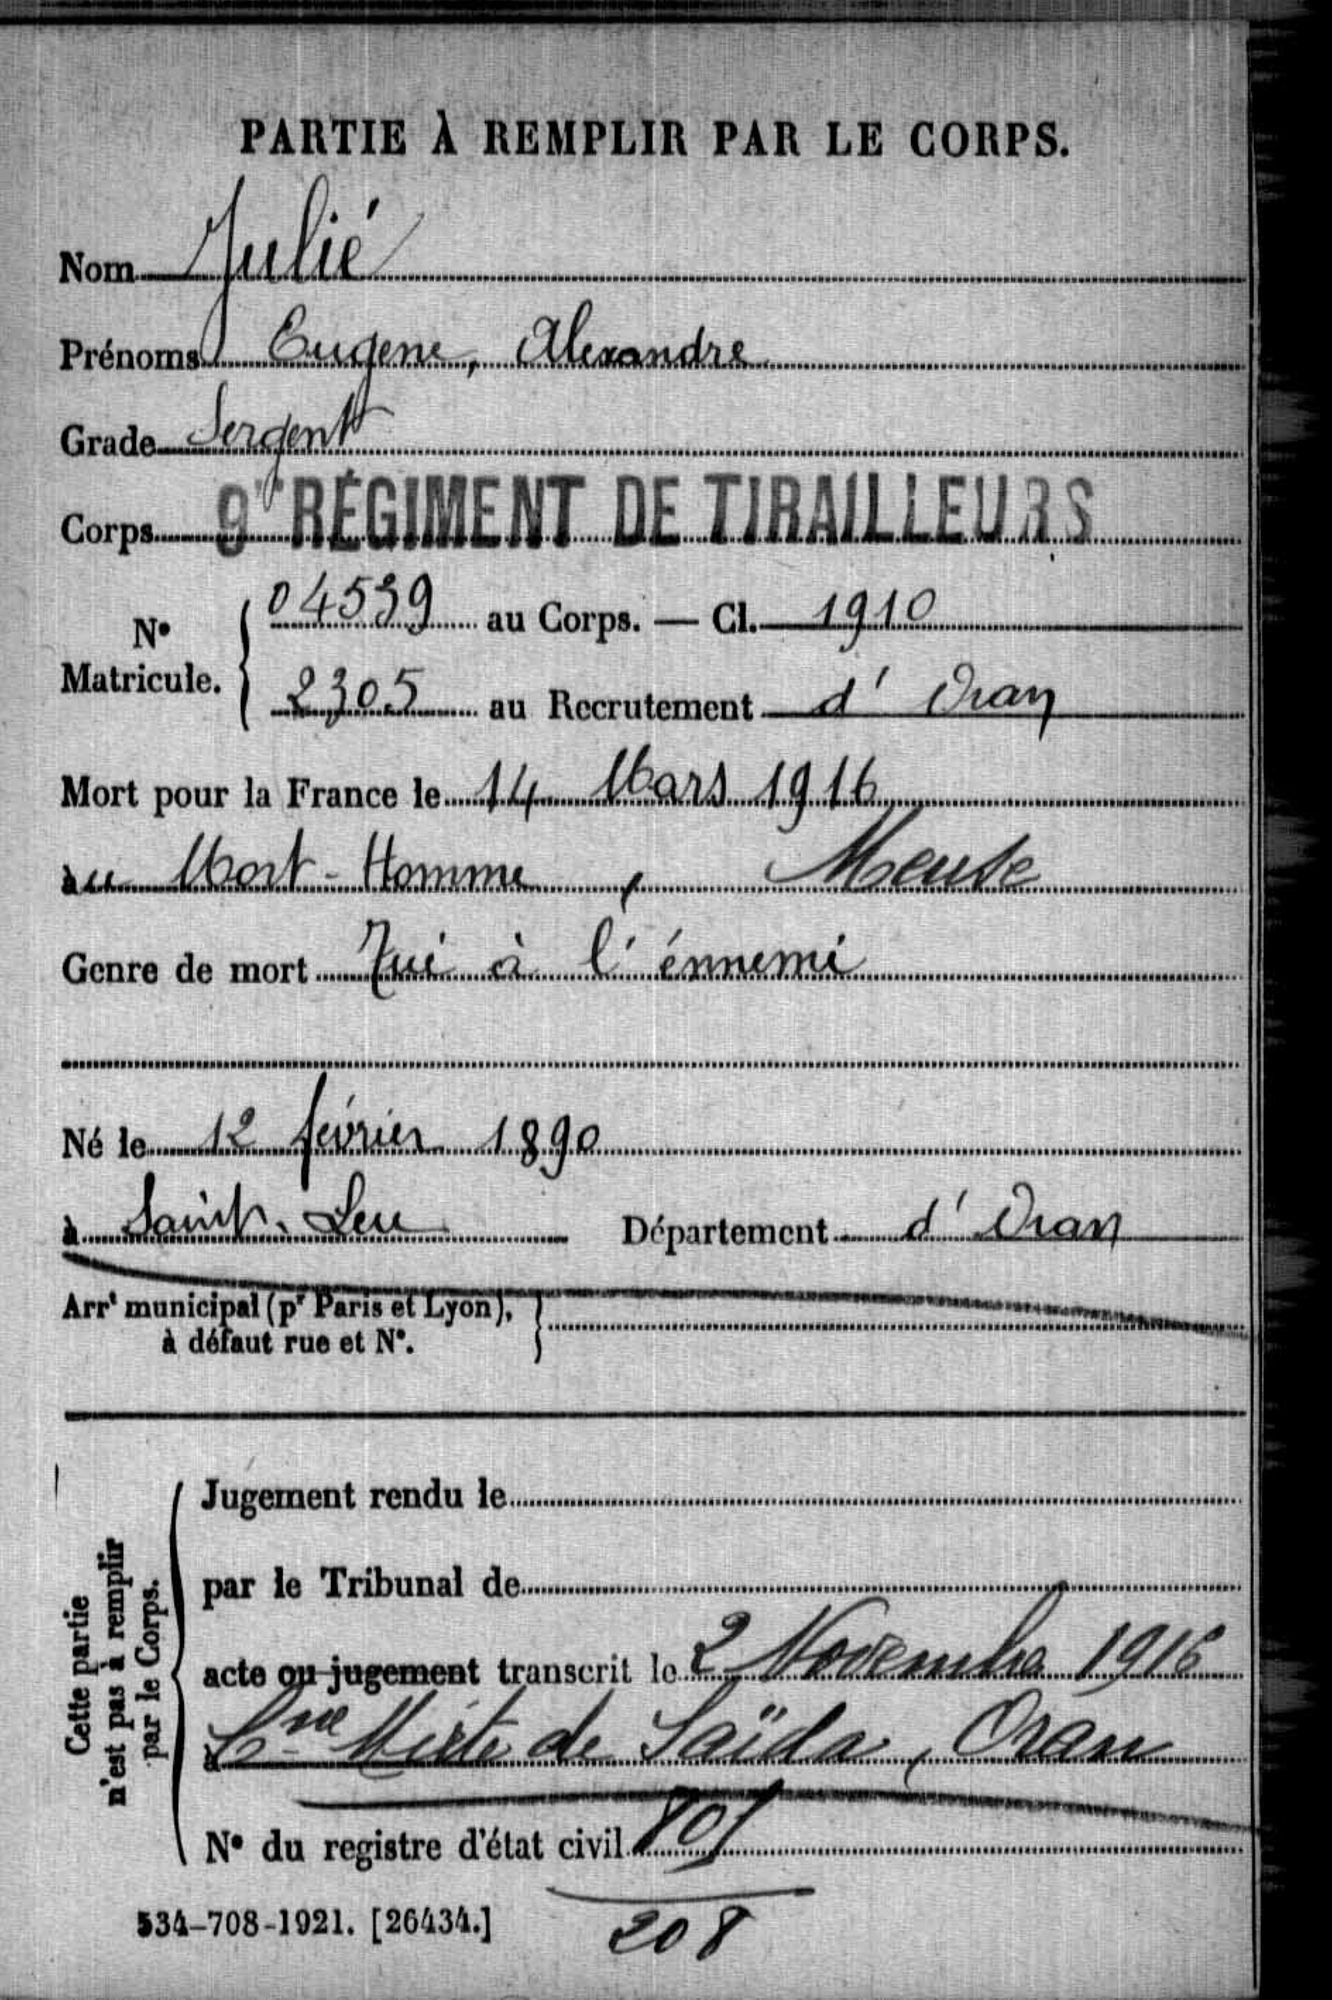 PARTIE À REMPLIR PAR LE CORPS.
Nom Julié
Prénoms Eugene, Alexandre
Grade Sergent
Corps 9e RÉGIMENT DE TIRAILLEURS
N° Matricule. 04539 au Corps. — Cl. 1910
2305 au Recrutement d' Oran
Mort pour la France le 14 Mars 1916
au Mort-Homme, Meuse
Genre de mort Tué à l'énnemi
Né le 12 février 1890
à Saint-Leu Département d' Oran
Arrt municipal (pr Paris et Lyon),
à défaut rue et N°.
Cette partie
n'est pas à remplir
par le Corps.
Jugement rendu le
par le Tribunal de
acte ou jugement transcrit le 2 Novembre 1916
à Cne Mixte de Saïda, Oran
N° du registre d'état civil
534-708-1921. [26434.]
208